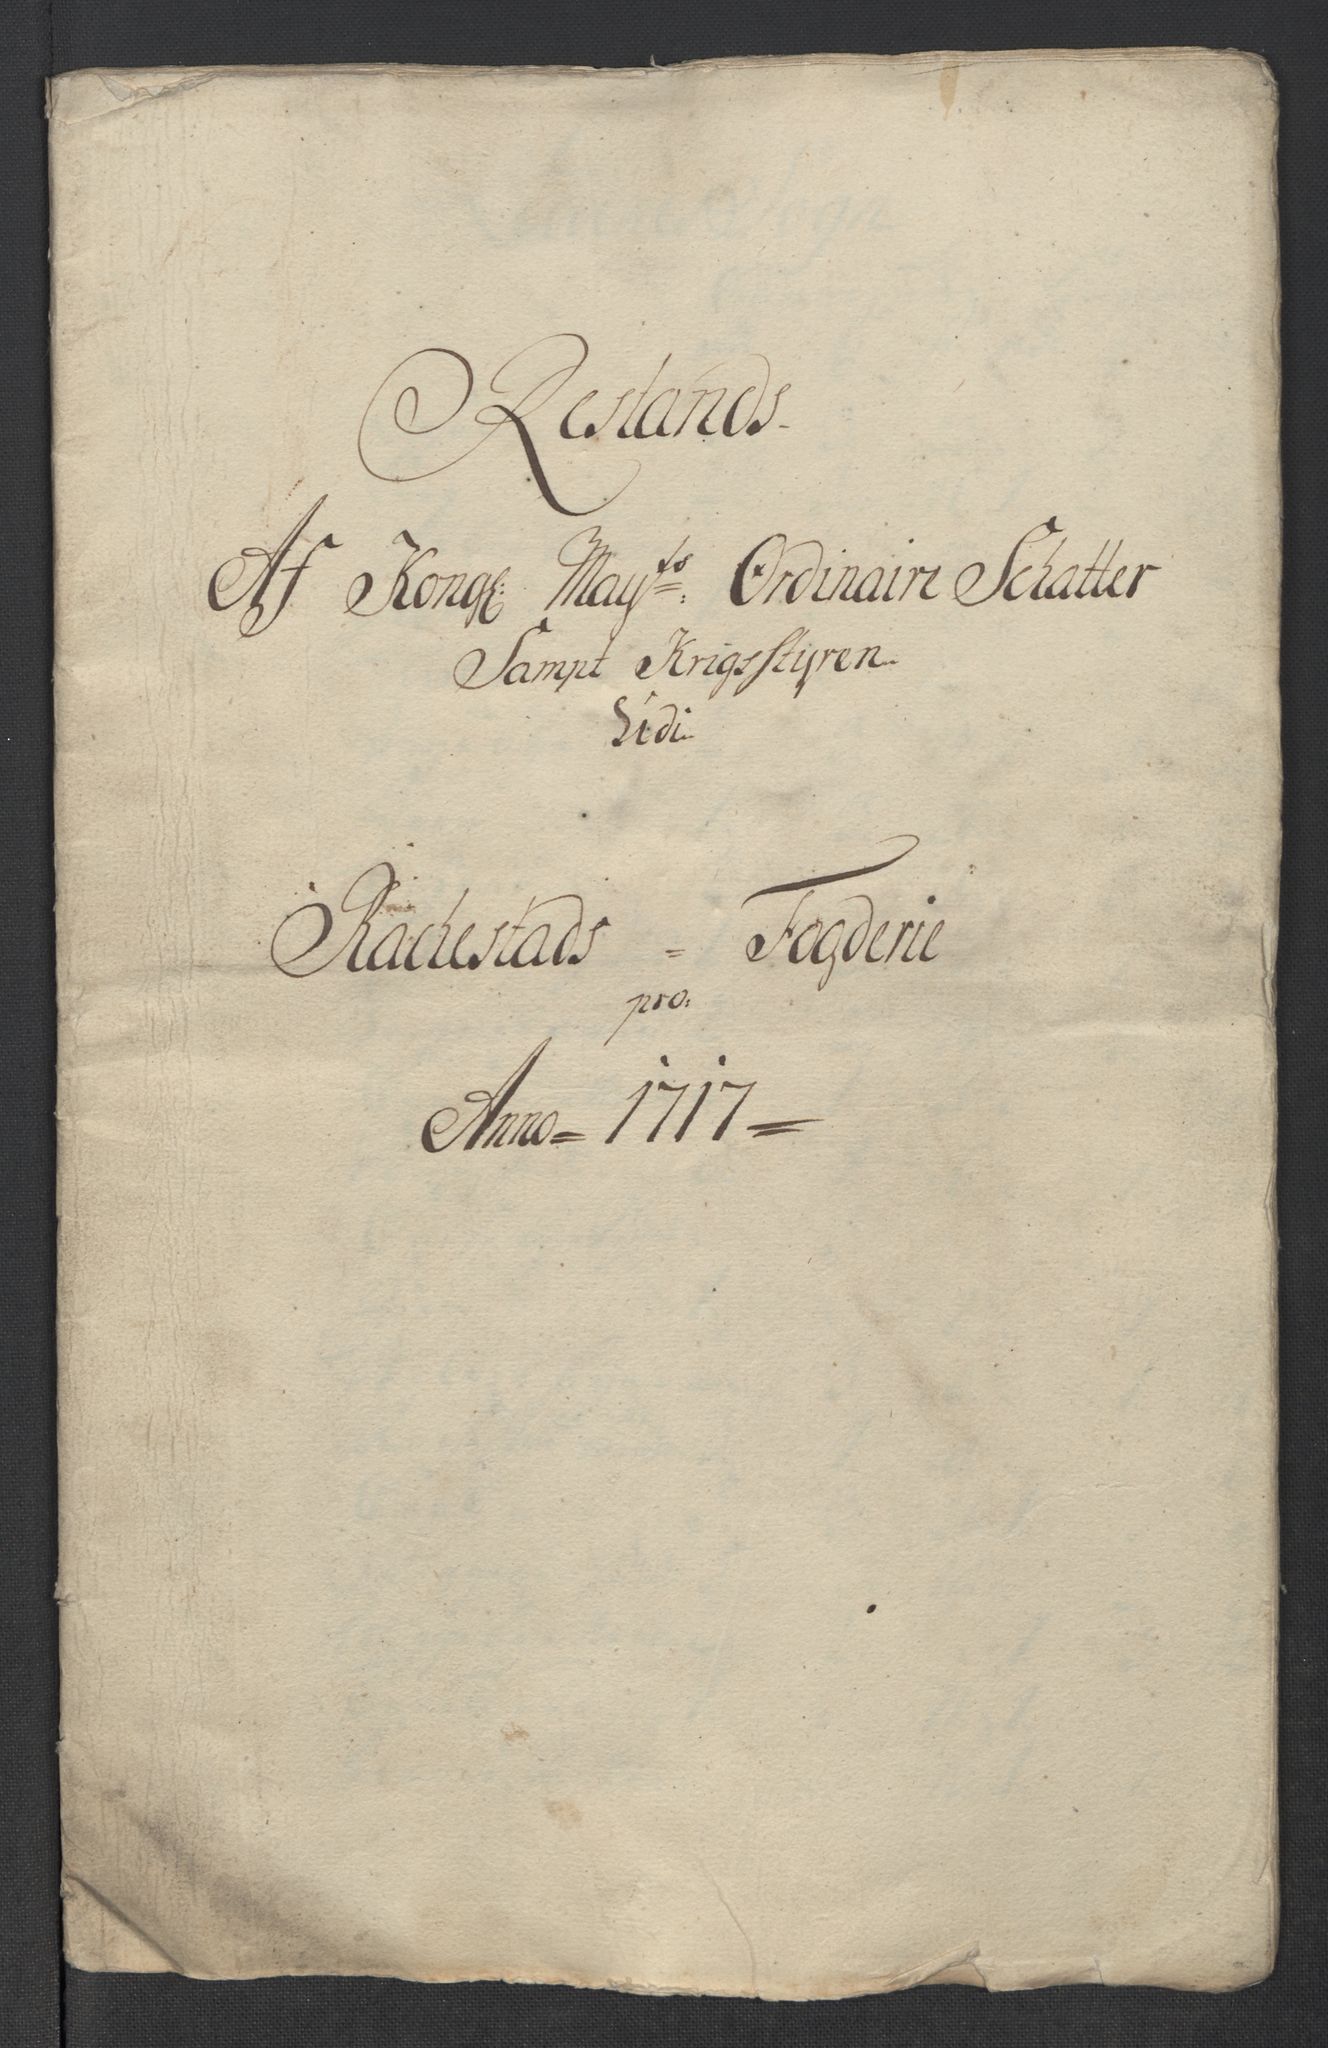 Restands
Af Kongl: Mayts: Ordinaire Schatter
Sampt Krigsstyren
Udi
Rachestads = Fogderie
pro:
Anno = 1717 =